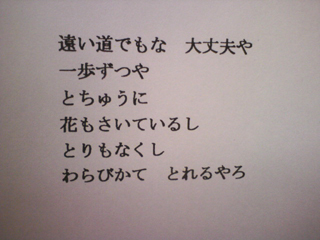 遠い道でもな　大丈夫や
一歩ずつや
とちゅうに
花もさいているし
とりもなくし
わらびかて　とれるやろ